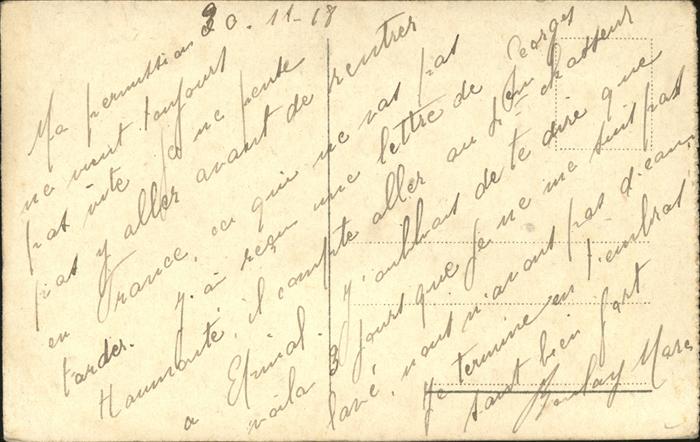 30. 11-18
Ma permission
ne vient toujours
pas vite je ne pense
pas y aller avant de rentrer
en France, ce qui ne vas pas
tarder. J'ai reçu une lettre de Georges
Haumonté, il compte aller au chasseur
a Epinal. J'oubliais de te dire que
voila 3 jours que je ne me suis pas
lavé, nous n'avons pas d'eau,
Je termine en t'embras
sant bien fort
Marc